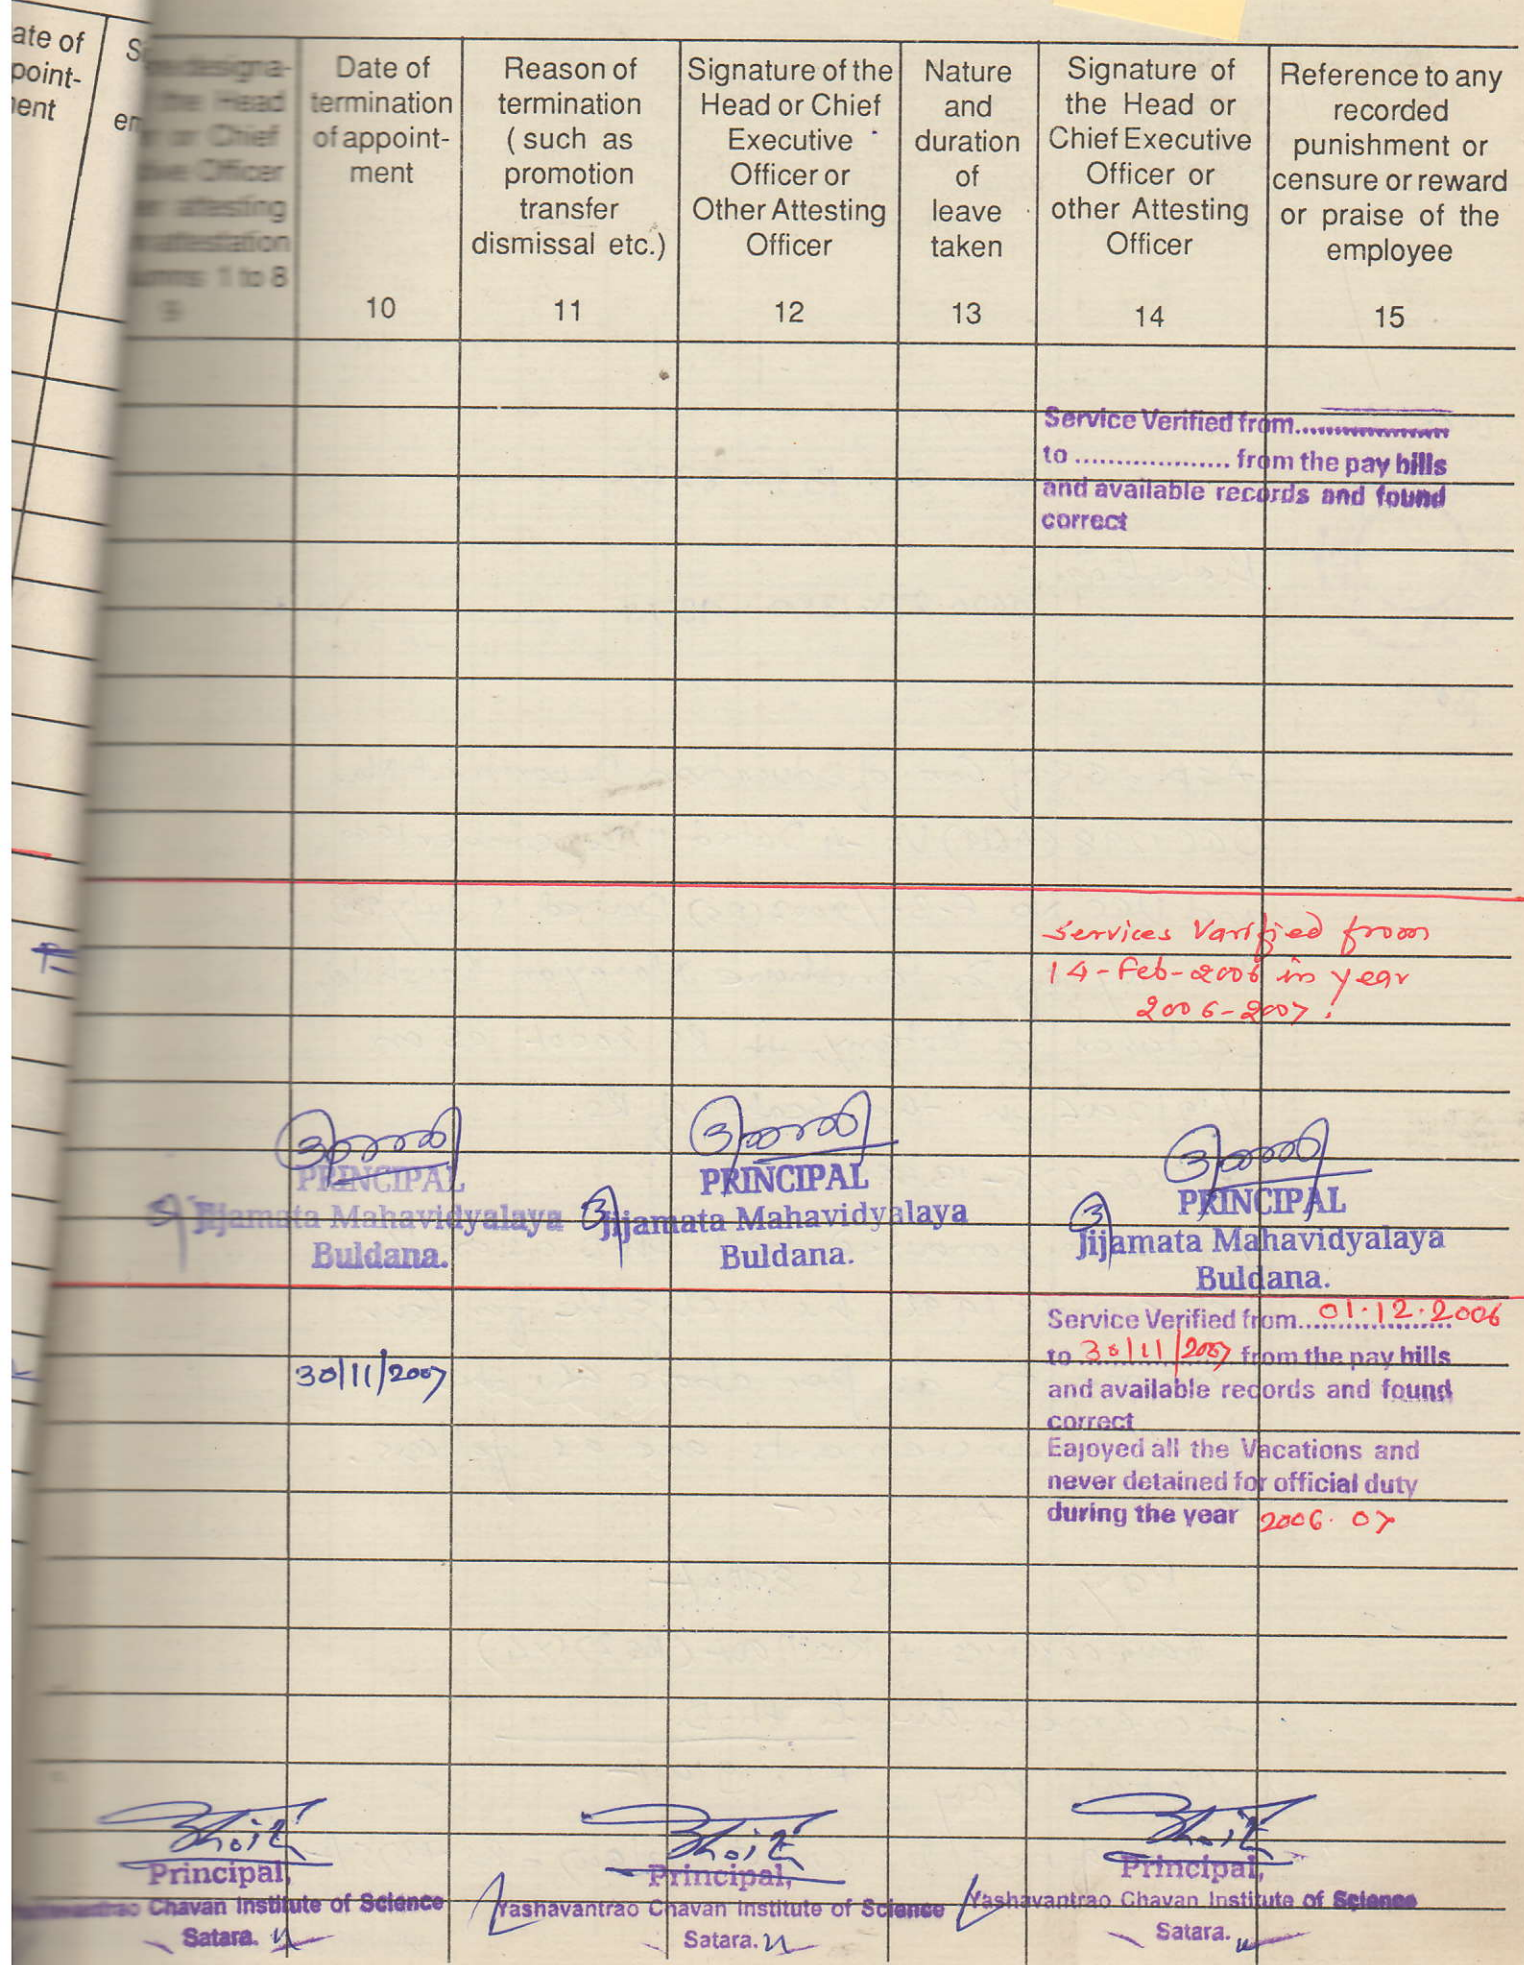 ate of
point-
ent
designa-
the Head
or Chief
Officer
attesting
attestation
1 to 8
9
Date of
termination
of appoint-
ment
10
Reason of
termination
( such as
promotion
transfer
dismissal etc.)
11
Signature of the
Head or Chief
Executive
Officer or
Other Attesting
Officer
12
Nature
and
duration
of
leave
taken
13
Signature of
the Head or
Chief Executive
Officer or
other Attesting
Officer
14
Reference to any
recorded
punishment or
censure or reward
or praise of the
employee
15
Service Verified from....................
to ................... from the pay bills
and available records and found
correct
Services Varified from
14-Feb-2006 in year
2006-2007.
PRINCIPAL
Jijamata Mahavidyalaya
Buldana.
PRINCIPAL
Jijamata Mahavidyalaya
Buldana.
PRINCIPAL
Jijamata Mahavidyalaya
Buldana.
30/11/2007
Service Verified from....01.12.2006
to 30/11/2007 from the pay bills
and available records and found
correct
Eajoyed all the Vacations and
never detained for official duty
during the year 2006.07
Principal,
Chavan Institute of Science
Satara.
Principal,
Yashavantrao Chavan Institute of Science
Satara.
Principal,
Yashavantrao Chavan Institute of Science
Satara.